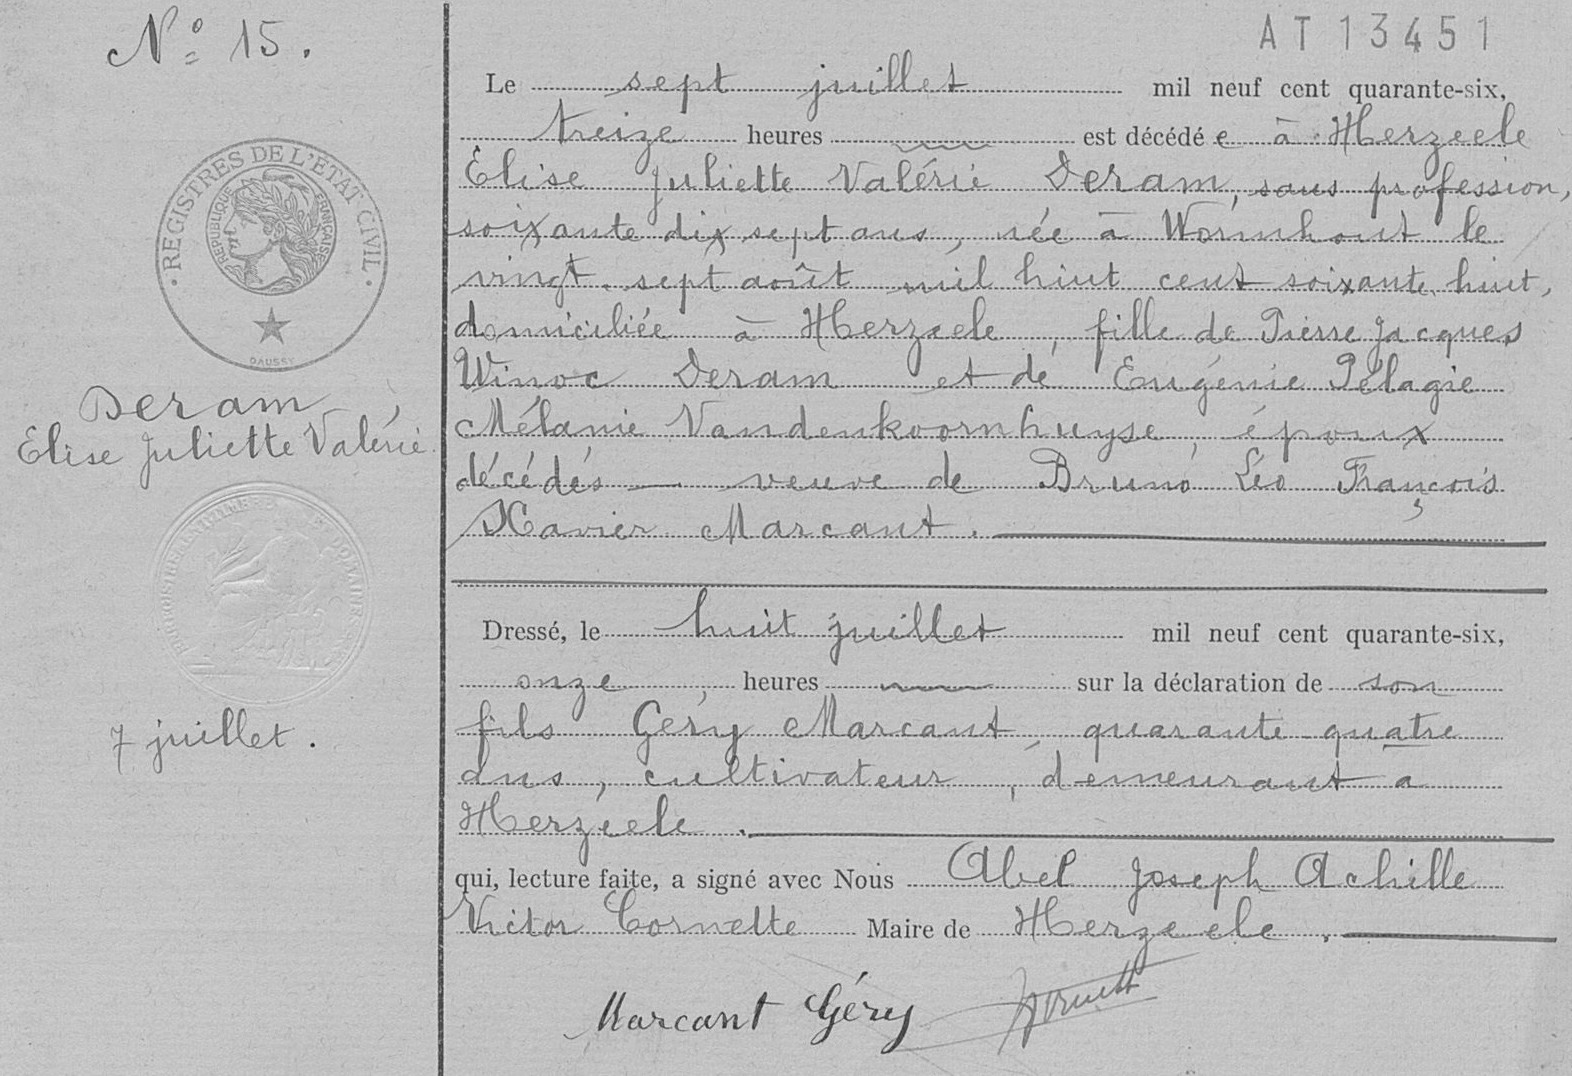 N° 15.
REGISTRES DE L'ETAT CIVIL
REPUBLIQUE FRANÇAISE
DAUSSY
Deram
Elise Juliette Valérie
7 juillet.
AT 13451
Le sept juillet mil neuf cent quarante-six,
treize heures est décédée à Herzeele
Elise Juliette Valérie Deram, sans profession,
soixante dix sept ans, née à Wormhout le
vingt-sept août mil huit cent soixante huit,
domiciliée à Herzeele, fille de Pierre Jacques
Winoc Deram et de Eugénie Pélagie
Mélanie Vandenkoornhuyse, époux
décédés — veuve de Bruno Léo François
Xavier Marcant.
Dressé, le huit juillet mil neuf cent quarante-six,
onze heures sur la déclaration de son
fils Géry Marcant, quarante-quatre
ans, cultivateur, demeurant a
Herzeele.
qui, lecture faite, a signé avec Nous Abel Joseph Achille
Victor Cornette Maire de Herzeele.
Marcant Géry